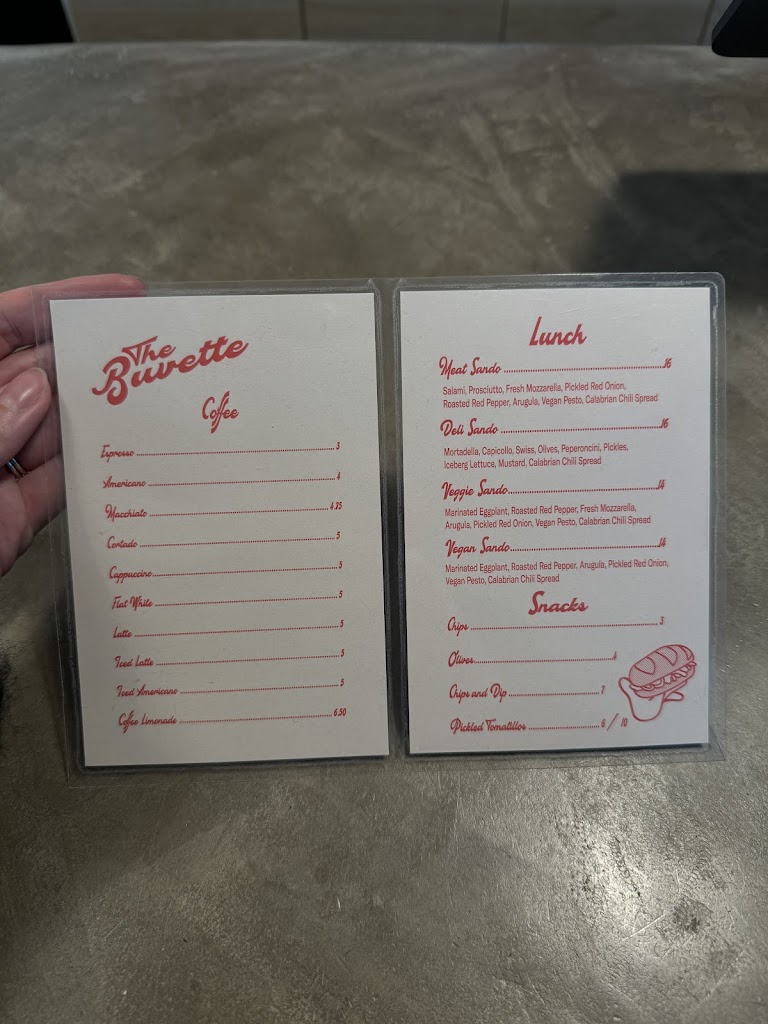 The
Buvette
Coffee
Espresso 3
Americano 4
Macchiato 4.25
Cortado 5
Cappuccino 5
Flat White 5
Latte 5
Iced Latte 5
Iced Americano 5
Coffee Limonade 6.50
Lunch
Meat Sando 16
Salami, Prosciutto, Fresh Mozzarella, Pickled Red Onion,
Roasted Red Pepper, Arugula, Vegan Pesto, Calabrian Chili Spread
Deli Sando 16
Mortadella, Capicollo, Swiss, Olives, Peperoncini, Pickles,
Iceberg Lettuce, Mustard, Calabrian Chili Spread
Veggie Sando 14
Marinated Eggplant, Roasted Red Pepper, Fresh Mozzarella,
Arugula, Pickled Red Onion, Vegan Pesto, Calabrian Chili Spread
Vegan Sando 14
Marinated Eggplant, Roasted Red Pepper, Arugula, Pickled Red Onion,
Vegan Pesto, Calabrian Chili Spread
Snacks
Chips 3
Olives 4
Chips and Dip 7
Pickled Tomatillos 6 / 10